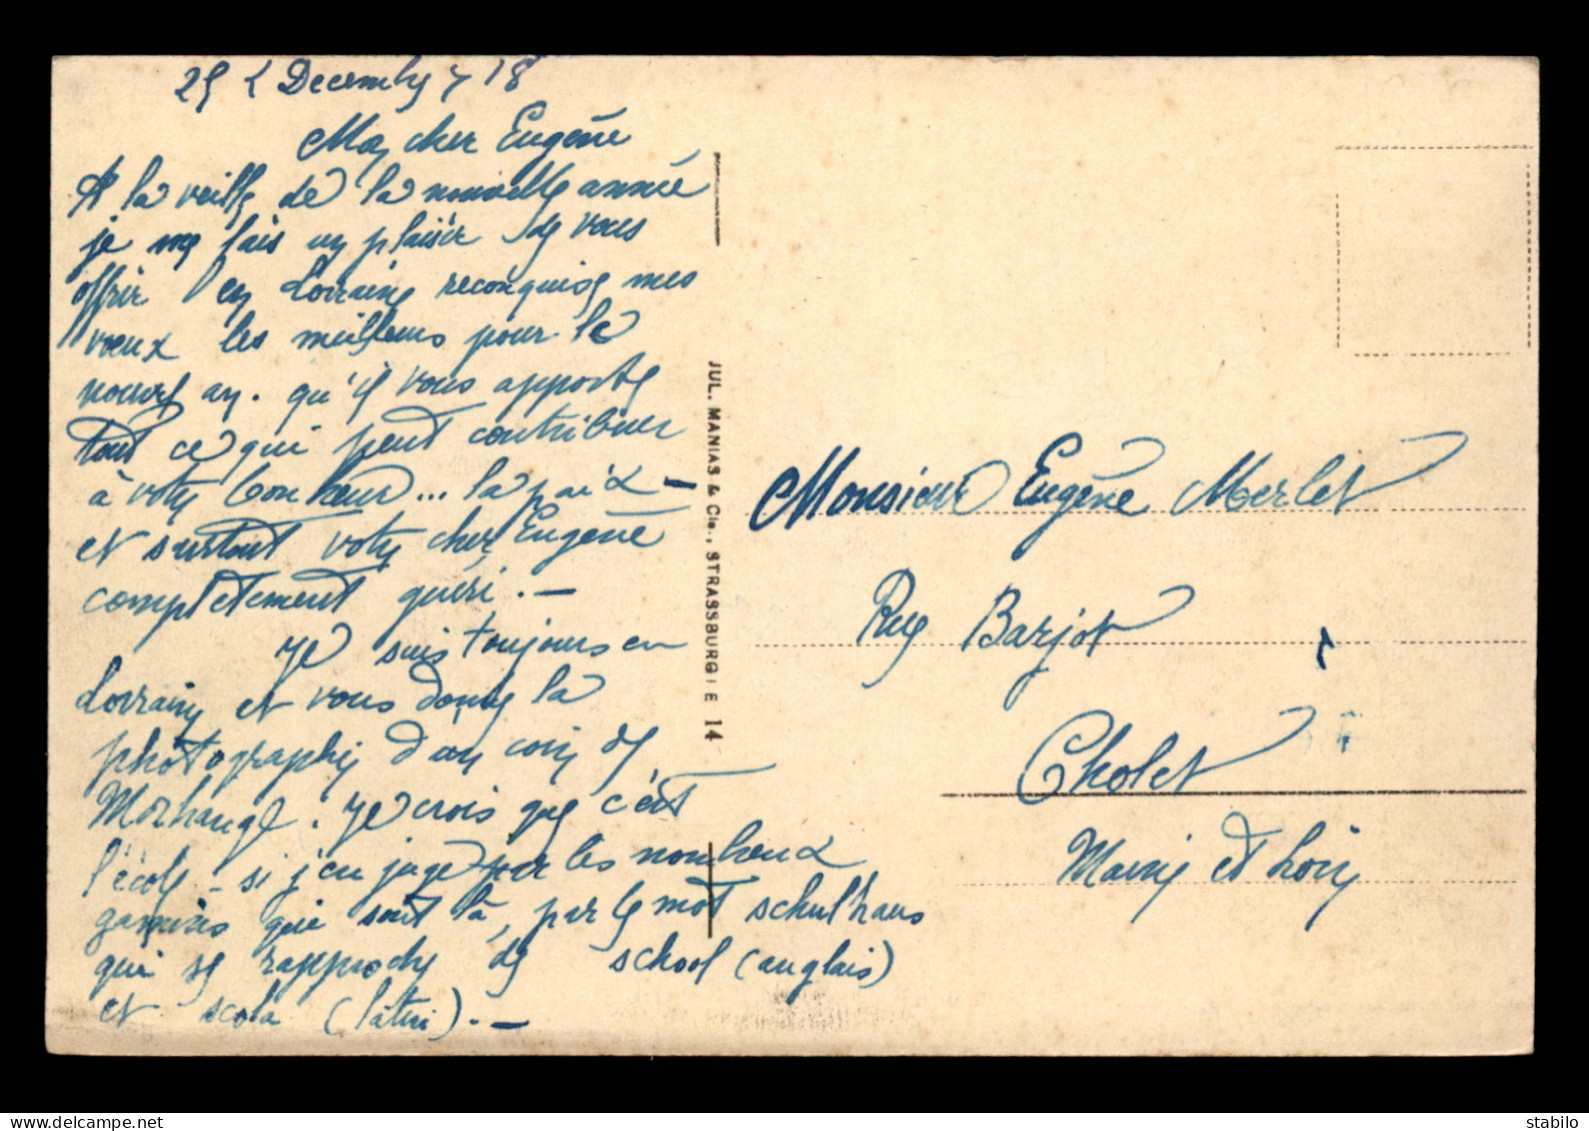 25 Decembre 18
Mon cher Eugène
A la veille de la nouvelle année
je me fais un plaisir de vous
offrir en Lorraine reconquise mes
vœux les meilleurs pour le
nouvel an. qu'il vous apporte
tout ce qui peut contribuer
à votre bonheur... la paix -
et surtout votre cher Eugène
complètement guéri. -
Je suis toujours en
Lorraine et vous donne la
photographie d'un coin de
Morhange. Je crois que c'est
l'école - si j'en juge par les nombreux
gamins qui sont là, par le mot schulhaus
qui se rapproche de school (anglais)
et scola (latin). -
JUL. MANIAS & Cie., STRASSBURG i E 14
Monsieur Eugène Merlet
Rue Barjot
Cholet
Maine et Loire
delcampe.net
stabilo